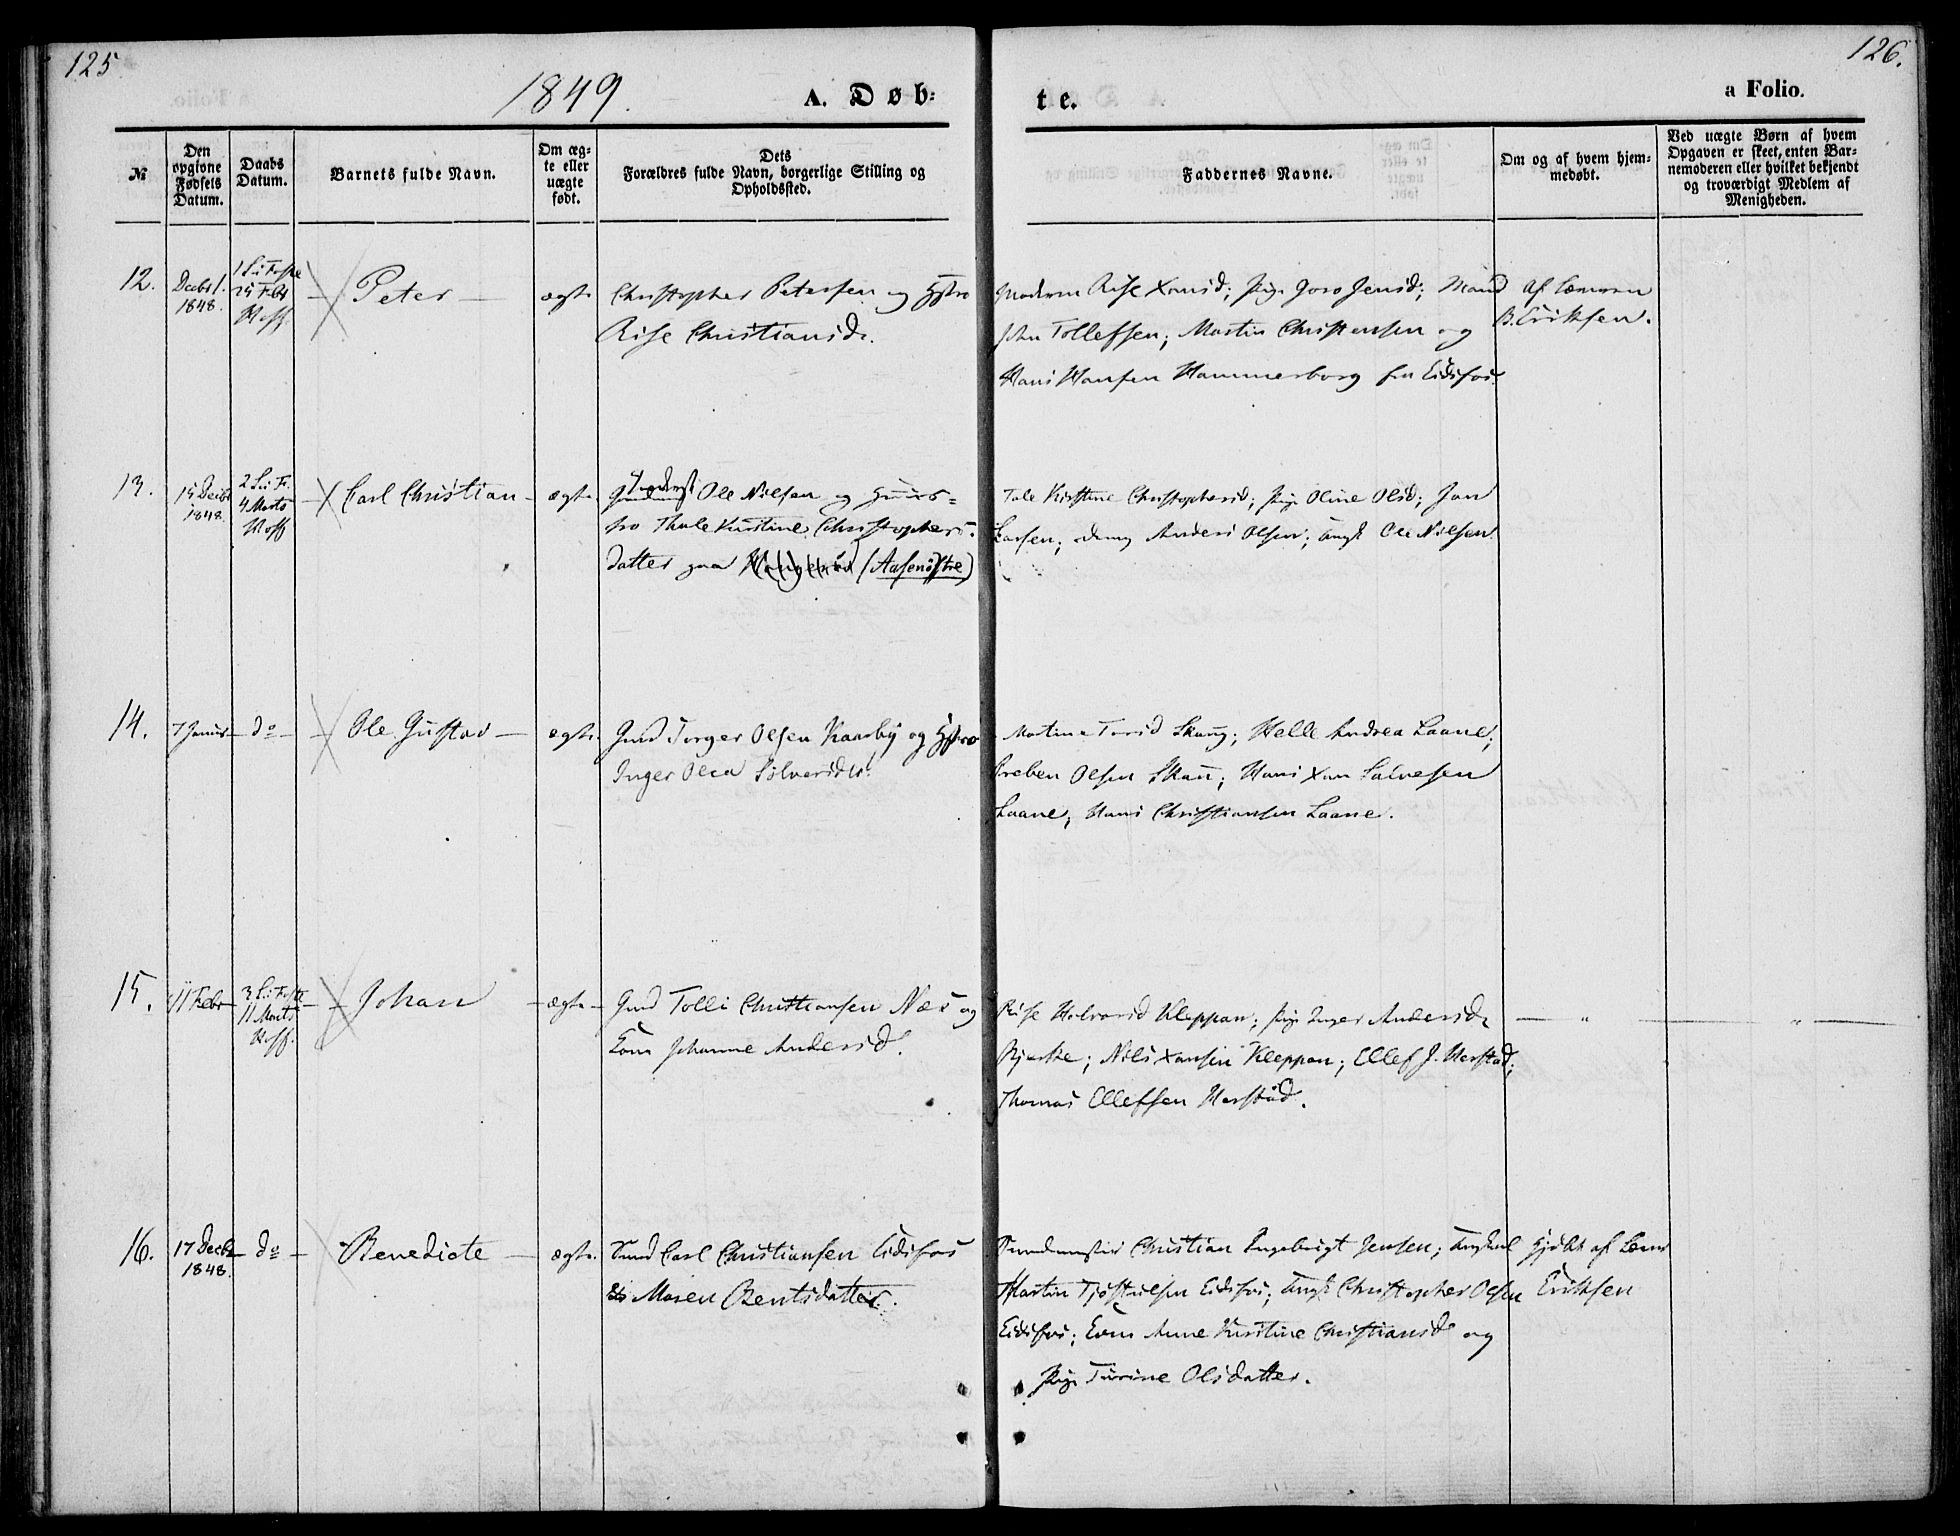 125
126.
1849.
A. Døb=
te.
a Folio.
№
Den opgivne Fødsels Datum.
Daabs Datum.
Barnets fulde Navn.
Om ægte eller uægte født.
Dets Forældres fulde Navn, borgerlige Stilling og Opholdssted.
Faddernes Navne.
Om og af hvem hjemmedøbt.
Ved uægte Børn af hvem Opgaven er skeet, enten Barnemoderen eller hvilket bekjendt og troværdigt Medlem af Menigheden.
12.
Decbr 1.
1848.
25 Febr
Peter
ægte
Christopher Petersen og
Rise Christiansd.
Moderen Rise Xansd; Pige Joro Jensd; Mand
John Tolleffsen; Martin Christensen og
Hans Hansen Hammerborg fra Eidsfos
af Læreren
B. Eriksen.
13.
15 Decbr
1848.
4 Marts
Carl Christian
ægte
Ole Nilsen og Huus=
tro Thale Kirstine Christophers=
datter paa (Aasenöstre)
Tale Kirstine Christophersd; Pige Oline Olsd; Jan
Larsen; Anders Olsen; Ungk Ole Nilsen
14.
7 Januar
do
Ole Gustav
ægte
Gmd Torger Olsen Kaasby og Hstro
Inger Olea
Martine Torsd Skaug; Helle Andrea Laane;
Preben Olsen Skau; Hans Xan Salvesen
Laane; Hans Christiansen Laane.
15.
11 Febr
11 Marts
Johan
ægte
Gmd Tolli Christiansen Næs og
Kone Johanne Andersd.
Rise Halvorsd Kleppan; Pige Inger Andersd
Bjerke; Nils Xansen Kleppan; Ellef J. Herstad;
Thomas Elleffsen Herstad.
16.
17 Decbr
1848.
do
Benedicte
ægte
Carl Christiansen Eidsfos
Maren Bentsdatter.
Christian Ingebrigt Jensen; Ungkarl
Martin Eidsfos; Ungk Christopher Olsen
Eidsfos; Kone Anne Kirstine Christiansd og
Pige Turine Olsdatter.
Hjdbt af Lærer
Eriksen